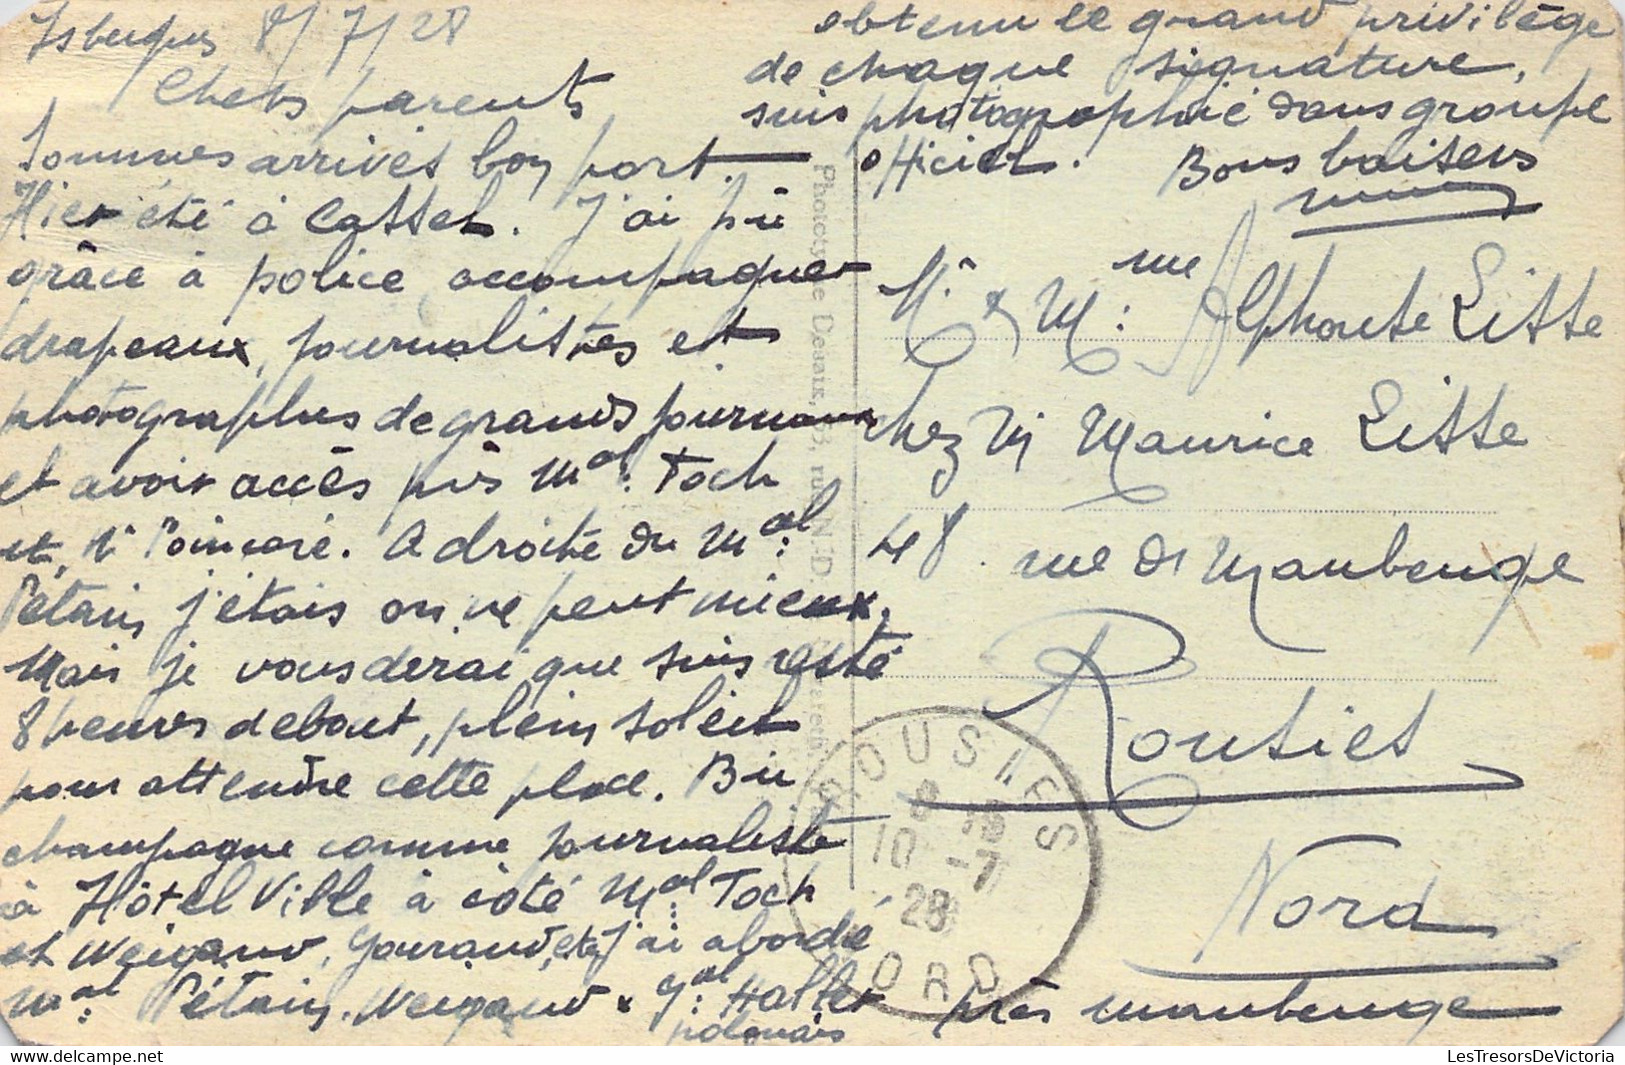 Isbergues 8/7/28
Chers parents
Sommes arrivés bon port.
Hier été à Cassel. J'ai pû
grâce à police accompagner
drapeaux, journalistes et
photographes de grands journaux
et avoir accès près Mal: Foch
et Poincaré. A droite du Mal:
Pétain j'étais on ne peut mieux,
Mais je vous derai que suis resté
8 heures debout, plein soleil
pour attendre cette place. Bu
champagne comme journaliste
à Hôtel Ville à côté Mal: Foch
et Weigand, Gouraud, etc, j'ai abordé
Mal: Pétain, Weigand & Gal: Haller
polonais
obtenu le grand privilège
de chaque signature,
suis photographié dans groupe
officiel. Bons baisers
Mr & Mme: Alphonse Lisse
chez Mr Maurice Lisse
48 rue de Maubeuge
Rousies
Nord
près Maubeuge
Phototypie Desaix,
ROUSIES
10 -7
28
NORD
LesTresorsDeVictoria